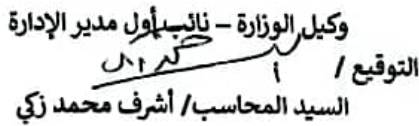 وكيل الوزارة – نائب أول مدير الإدارة
التوقيع /
السيد المحاسب/ أشرف محمد زكي